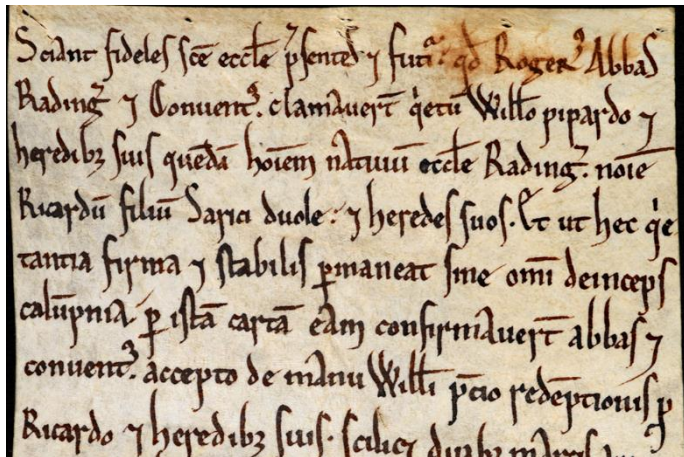 Sciant fideles sc̄e eccl̄e p̓sentes ⁊ futiᵃ. qd̄ Rogerꝰ Abbas
Rading̓ ⁊ Conuentꝰ. clamauert̄ qⁱetū Willo pipardo ⁊
heredibꝫ suis quēdā hoīem natiuū eccl̄e Rading̓. noīe
Ricardū filiū Sarici duole : ⁊ heredes suos. Et ut hec qⁱe
tantia firma ⁊ stabilis ꝑmaneat sine omī deinceps
calūpnia. ꝑ istā cartā eam confirmauert̄ abbas ⁊
conuentꝰ. accepto de manu Willi p̄cio redēptionis ꝑ
Ricardo ⁊ heredibꝫ suis. scilicꝫ duabꝫ marcis